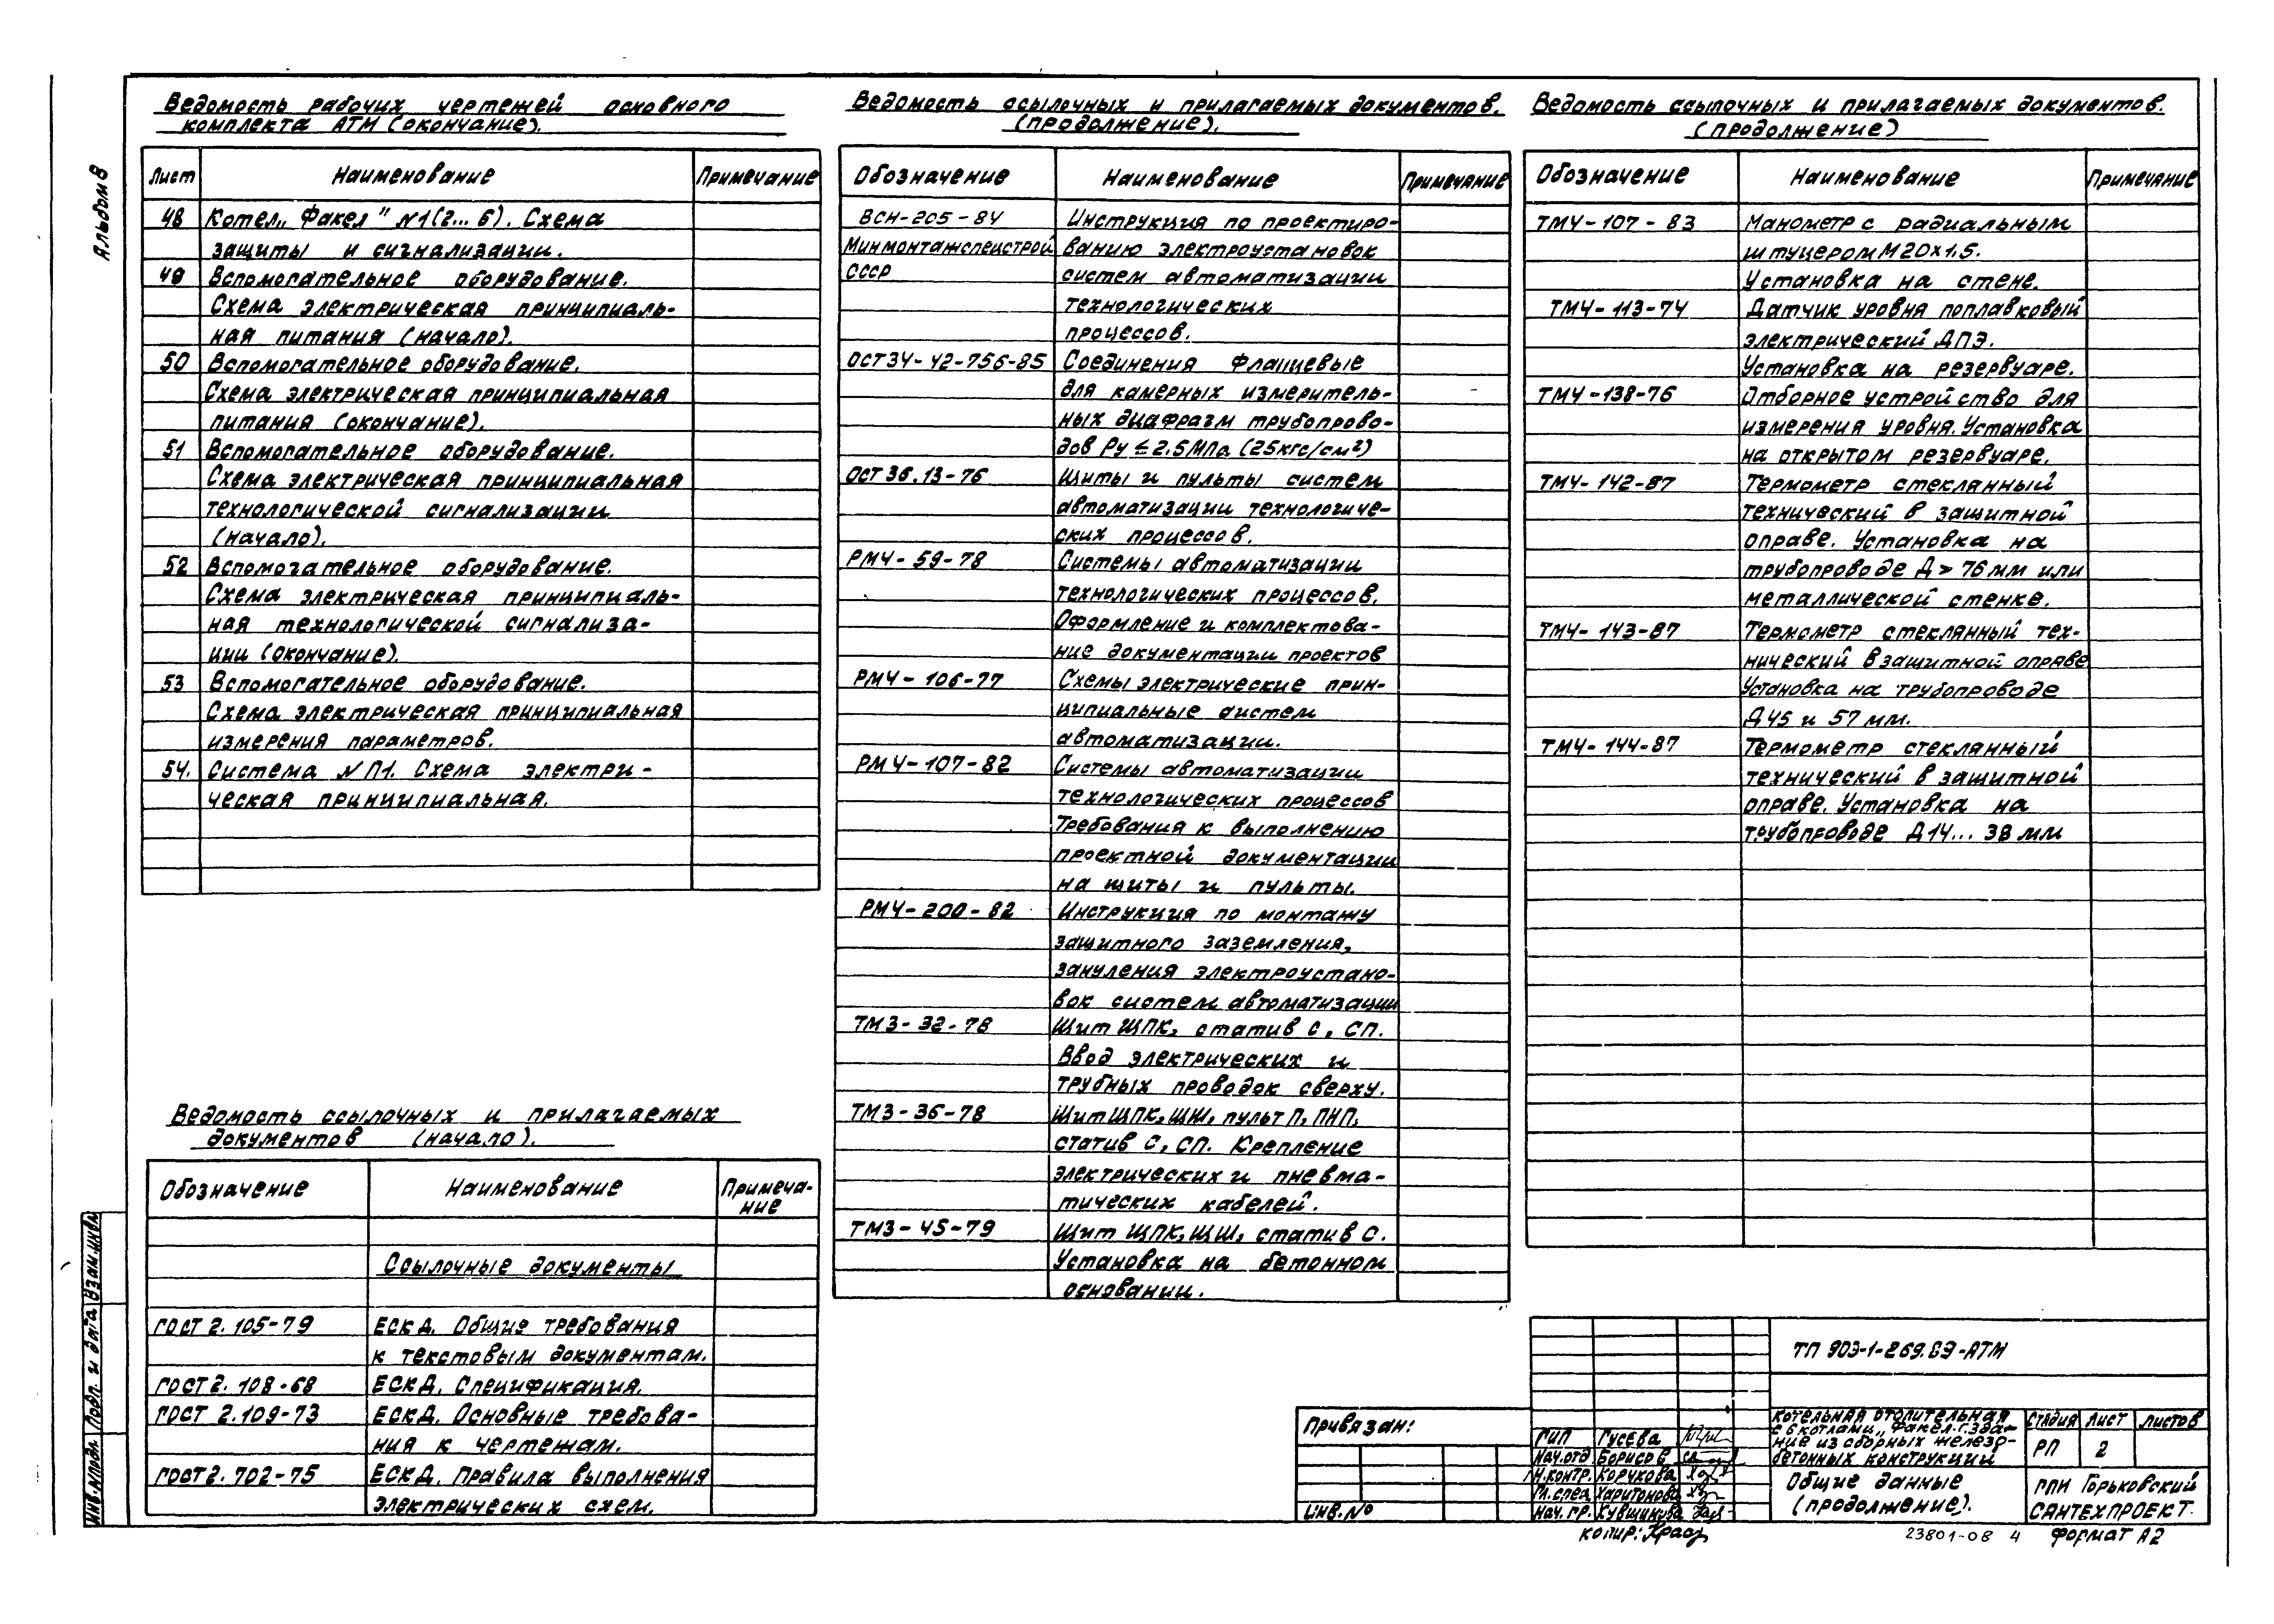 Альбом 8
Ведомость рабочих чертежей основного
комплекта АТМ (окончание).
Лист Наименование Примечание
48 Котел „Факел" N1(2...6). Схема
защиты и сигнализации.
49 Вспомогательное оборудование.
Схема электрическая принципиаль-
ная питания (начало).
50 Вспомогательное оборудование.
Схема электрическая принципиальная
питания (окончание).
51 Вспомогательное оборудование.
Схема электрическая принципиальная
технологической сигнализации
(начало).
52 Вспомогательное оборудование.
Схема электрическая принципиаль-
ная технологической сигнализа-
ции (окончание).
53 Вспомогательное оборудование.
Схема электрическая принципиальная
измерения параметров.
54. Система N П1. Схема электри-
ческая принципиальная.
Ведомость ссылочных и прилагаемых
документов (начало).
Обозначение Наименование Примеча-
ние
Ссылочные документы
ГОСТ 2.105-79 ЕСКД. Общие требования
к текстовым документам.
ГОСТ 2.108-68 ЕСКД. Спецификация.
ГОСТ 2.109-73 ЕСКД. Основные требова-
ния к чертежам.
ГОСТ 2.702-75 ЕСКД. Правила выполнения
электрических схем.
Ведомость ссылочных и прилагаемых документов.
(продолжение).
Обозначение Наименование Примечание
ВСН-205-84 Инструкция по проектиро-
Минмонтажспецстрой ванию электроустановок
СССР систем автоматизации
технологических
процессов.
ОСТ34-42-756-85 Соединения фланцевые
для камерных измеритель-
ных диафрагм трубопрово-
дов Ру ≤ 2.5 МПа (25кгс/см²)
ОСТ 36.13-76 Щиты и пульты систем
автоматизации технологиче-
ских процессов.
РМ4-59-78 Системы автоматизации
технологических процессов.
Оформление и комплектова-
ние документации проектов
РМ4-106-77 Схемы электрические прин-
ципиальные систем
автоматизации.
РМ4-107-82 Системы автоматизации
технологических процессов
Требования к выполнению
проектной документации
на щиты и пульты.
РМ4-200-82 Инструкция по монтажу
защитного заземления,
зануления электроустано-
вок систем автоматизации
ТМ3-32-78 Щит ЩПК, статив С, СП.
Ввод электрических и
трубных проводок сверху.
ТМ3-36-78 Щит ЩПК, ЩШ, пульт П, ПНП,
статив С, СП. Крепление
электрических и пневма-
тических кабелей.
ТМ3-45-79 Щит ЩПК, ЩШ, статив С.
Установка на бетонном
основании.
Ведомость ссылочных и прилагаемых документов.
(продолжение)
Обозначение Наименование Примечание
ТМ4-107-83 Манометр с радиальным
штуцером М20х1,5.
Установка на стене.
ТМ4-113-74 Датчик уровня поплавковый
электрический ДПЭ.
Установка на резервуаре.
ТМ4-138-76 Отборное устройство для
измерения уровня. Установка
на открытом резервуаре.
ТМ4-142-87 Термометр стеклянный
технический в защитной
оправе. Установка на
трубопроводе Д > 76 мм или
металлической стенке.
ТМ4-143-87 Термометр стеклянный тех-
нический в защитной оправе
Установка на трубопроводе
Д 45 и 57 мм.
ТМ4-144-87 Термометр стеклянный
технический в защитной
оправе. Установка на
трубопроводе Д 14... 38 мм
Инв.N подл. Подп. и дата Взам.инв.N
Привязан:
Инв.No
ТП 903-1-269.89-АТМ
ГИП Гусева
Нач.отд Борисов
Н.контр. Корчкова
Гл.спец. Харитонова
Нач. гр. Кувшинова
Котельная отопительная
с 6 котлами „Факел-Г. Зда-
ние из сборных железо-
бетонных конструкций
Стадия Лист Листов
РП 2
Общие данные
(продолжение).
ГПИ Горьковский
САНТЕХПРОЕКТ.
Копир:
23801-08 4 Формат А2